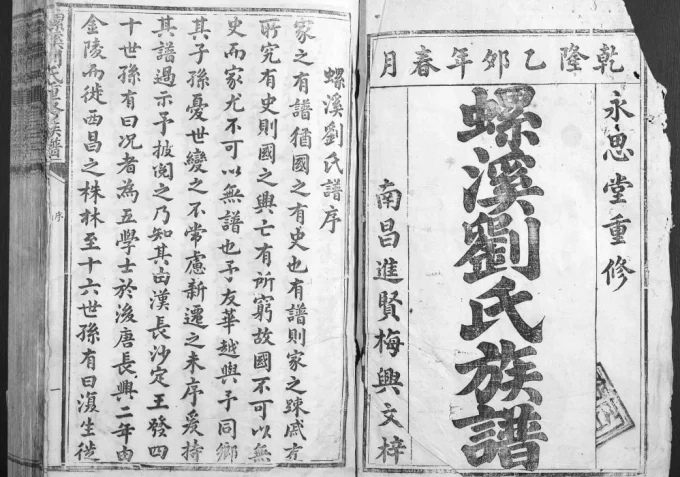 乾隆乙卯年春月
永思堂重修
螺溪劉氏族譜
南昌進賢梅興文梓
螺溪劉氏譜序
家之有譜猶國之有史也有譜則家之踈戚有
所究有史則國之興亡有所窮故國不可以無
史而家尤不可以無譜也予友華越與予同鄉
其子孫憂世變之不常慮新遷之未序爰持
其譜過示予披閱之乃知其由漢長沙定王發四
十世孫有曰况者為五學士於後唐長興二年由
金陵而徙西昌之株林至十六世孫有曰復生徙
序
一